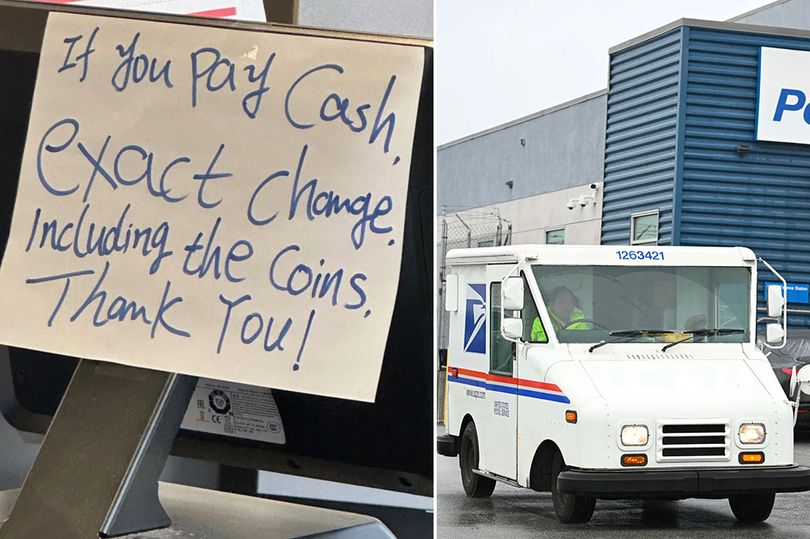 If You Pay Cash,
exact change.
Including the Coins,
Thank You!
1262421
UNITED STATES
POSTAL SERVICE
www.usps.com
CE